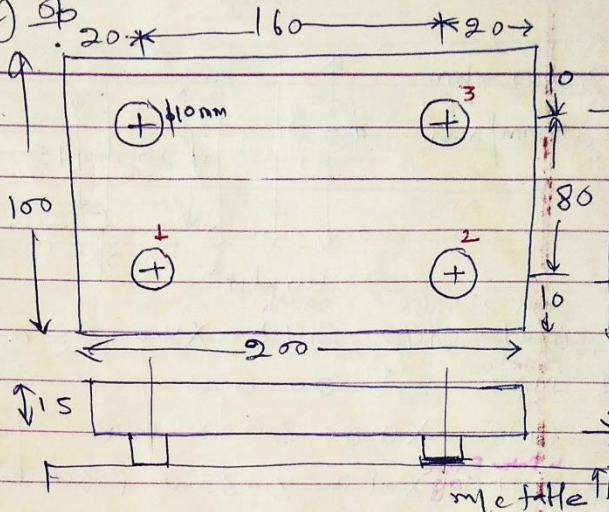 20 160 20
ϕ10mm 3 10
100 80
1 2
10
200
15
m/c table